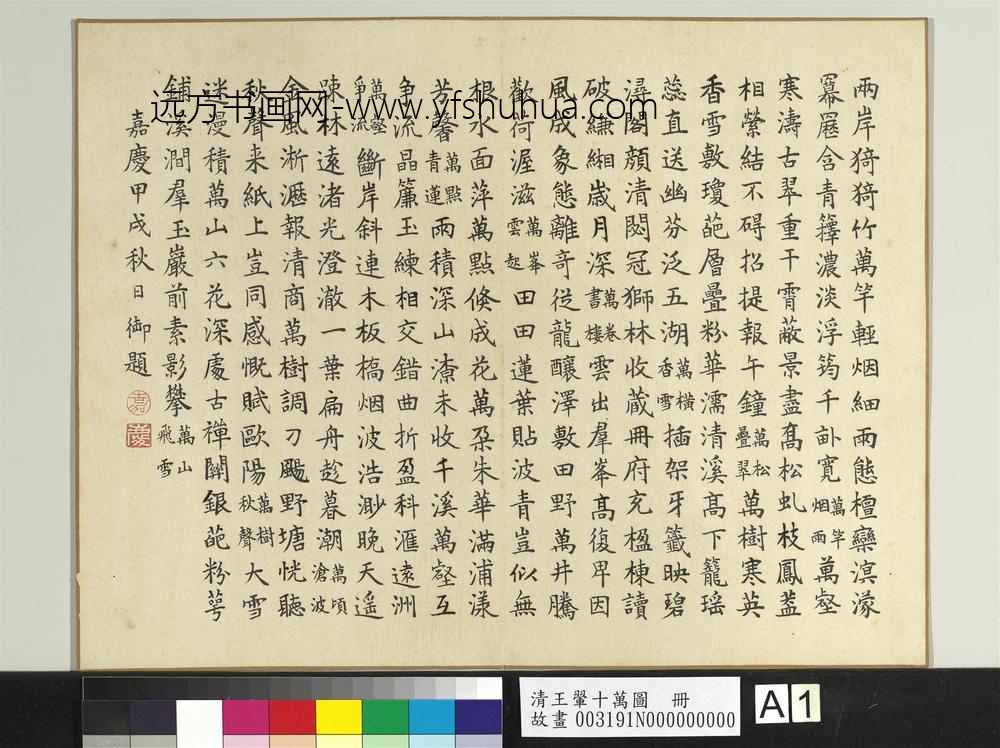 兩岸猗猗竹萬竿輕烟細雨態檀欒溟濛
冪含青籜濃淡浮筠千畝寬萬竿烟雨萬壑
寒濤古翠重干霄蔽景盡髙松虬枝鳳葢
相縈結不碍招提報午鐘萬松疊翠萬樹寒英
香雪敷瓊葩層疊粉華濡清溪髙下籠瑶
蕊直送幽芬泛五湖萬横香雪插架牙籤映碧
潯閣頗清閟冠獅林收蔵冊府充楹棟讀
破縑緗歲月深萬卷書樓雲出羣峯髙復卑因
風成象態離竒從龍釀澤敷田野萬井騰
歡荷渥滋萬峯雲起田田蓮葉貼波青豈似無
根水面萍萬點倐成花萬朶朱華滿浦漾
芳馨萬點青蓮雨積深山潦未收千溪萬壑互
争流晶簾玉練相交錯曲折盈科滙遠洲
萬壑争流斷岸斜連木板槁烟波浩渺晚天遥
疎林遠渚光澄澈一葉扁舟趁暮潮萬頃滄波
金風淅瀝報清商萬樹調刀颺野塘恍聽
秋聲来紙上豈同感慨賦歐陽萬樹秋聲大雪
迷漫積萬山六花深處古禪關銀葩粉萼
鋪溪澗羣玉巖前素影攀萬山飛雪
嘉慶甲戌秋日御題
嘉
慶
远方书画网-www.yfshuhua.com
清王翬十萬圖 冊
故畫 003191N000000000
A 1